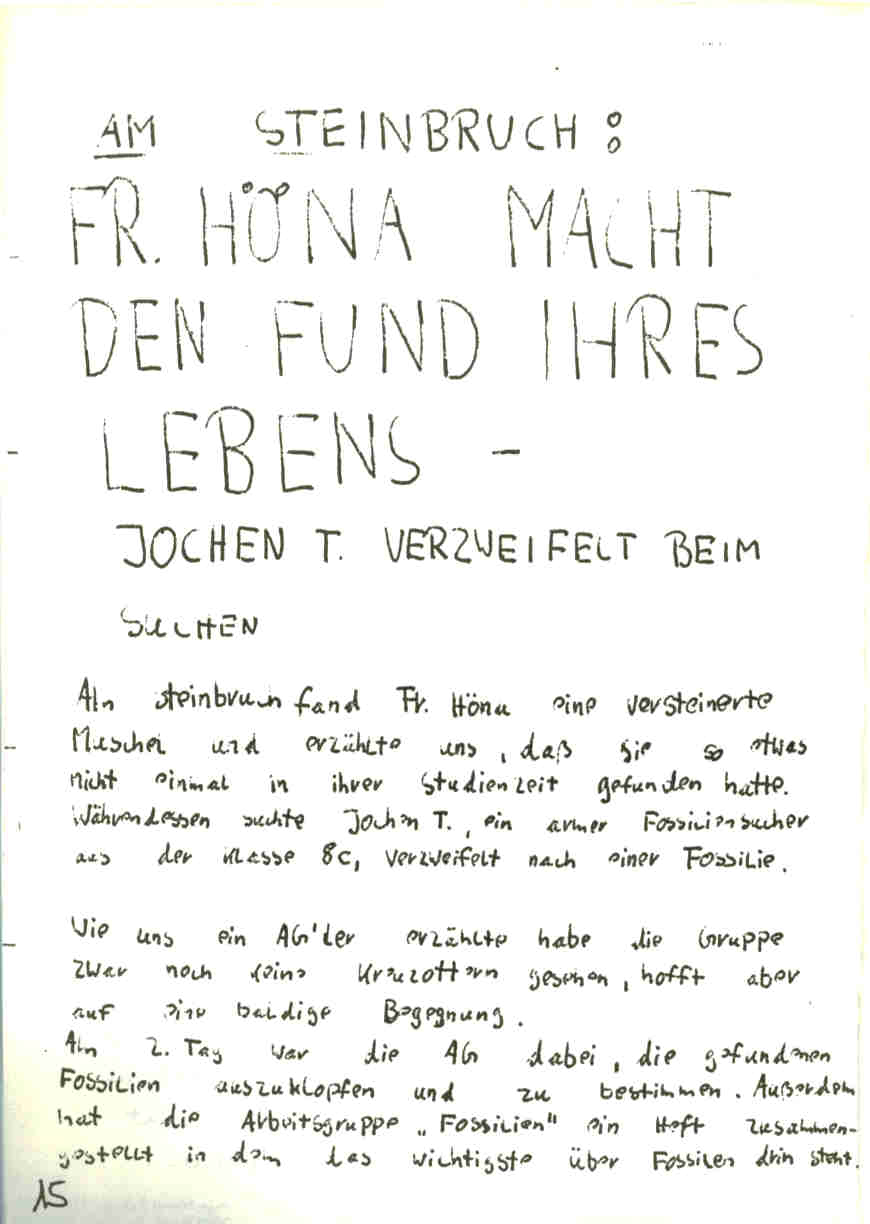 AM STEINBRUCH:
FR. HÖNA MACHT
DEN FUND IHRES
LEBENS -
JOCHEN T. VERZWEIFELT BEIM
SUCHEN
Am steinbruch fand Fr. Höna eine versteinerte
Muschel und erzählte uns, daß sie so etwas
nicht einmal in ihrer Studienzeit gefunden hatte.
Währendessen suchte Jochen T., ein armer Fossiliensucher
aus der Klasse 8c, verzweifelt nach einer Fossilie.
Wie uns ein AG'ler erzählte habe die Gruppe
zwar noch keine Kreuzottern gesehen, hofft aber
auf eine baldige Begegnung.
Am 2. Tag war die AG dabei, die gefundenen
Fossilien auszuklopfen und zu bestimmen. Außerdem
hat die Arbeitsgruppe „Fossilien" ein Heft zusammen-
gestellt in dem das wichtigste über Fossilen drin steht.
15